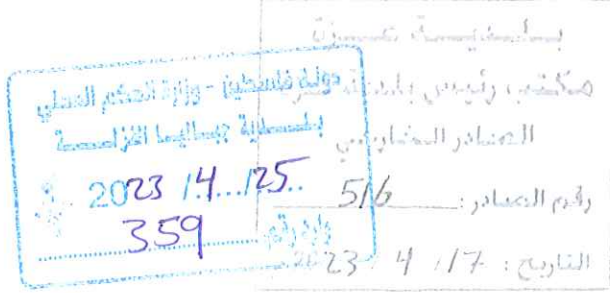 بلدية غزة
مكتب رئيس بلدية غزة
الصادر الخارجي
رقم الصادر: 516
التاريخ: 17 / 4 / 2023
دولة فلسطين - وزارة الحكم المحلي
بلدية جباليا النزلة
2023 / 4 / 25
359